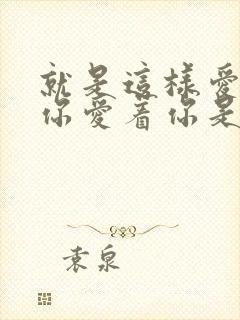 就是這樣愛
你愛着你是
袁泉